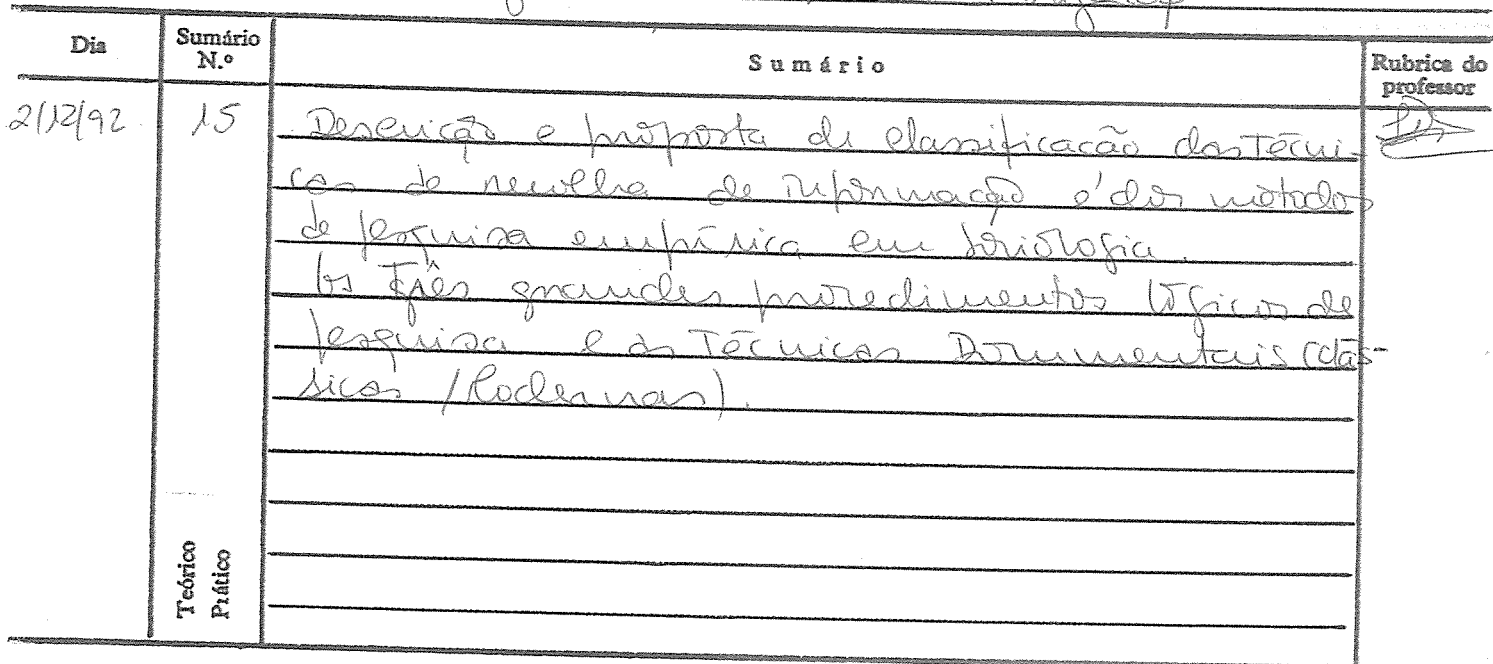 Dia Sumário N.º Sumário Rubrica do professor
2/12/92 15 Descrição e proposta de classificação das Técni-
cas de recolha de informação e dos métodos
de pesquisa empírica em sociologia.
Os Três grandes procedimentos lógicos de
pesquisa e as Técnicas Documentais (clás-
sicas / Modernas).
Teórico
Prático